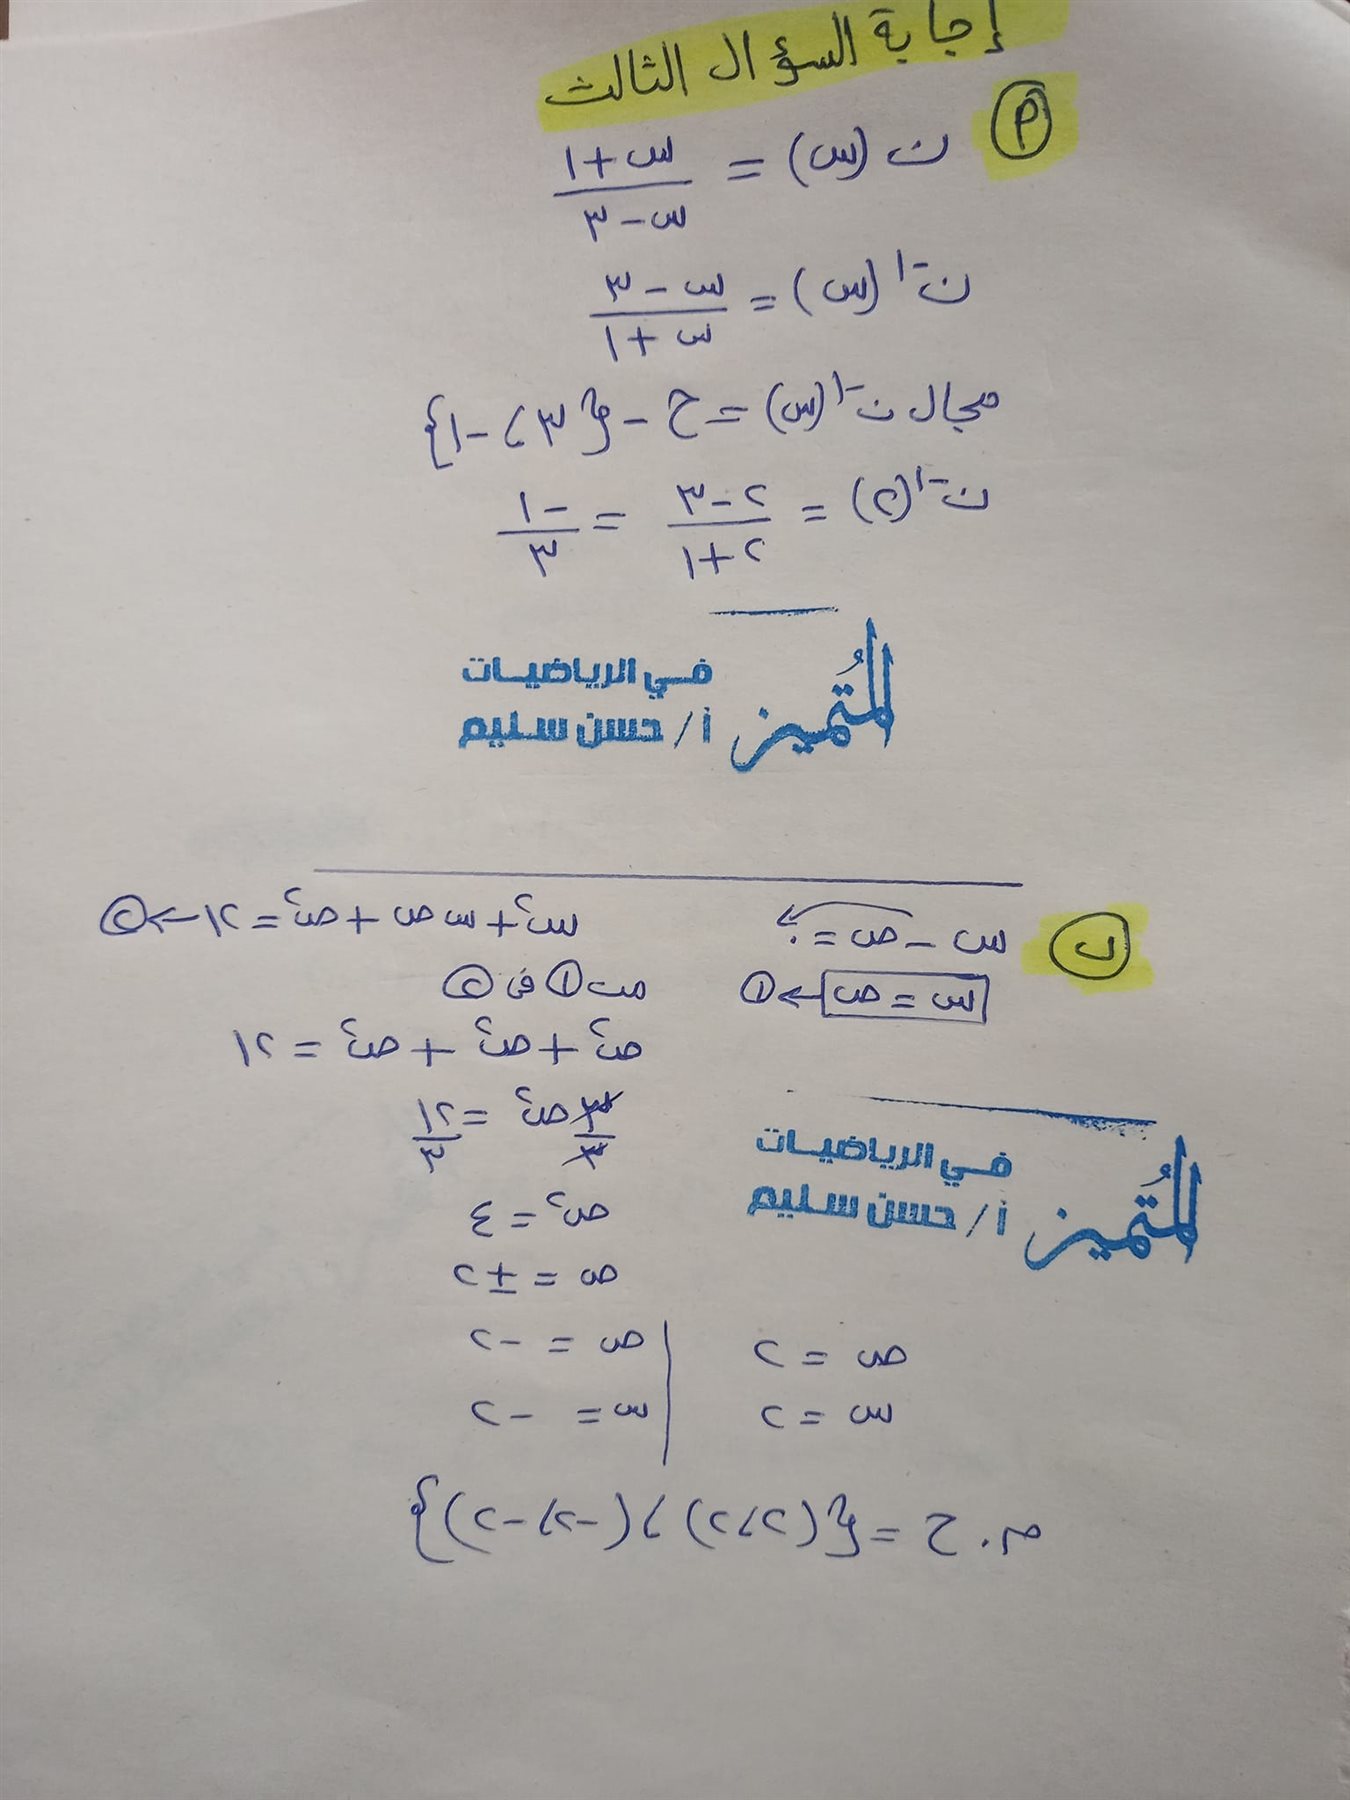 إجابة السؤال الثالث
(أ)
ن(س) = (س+١)/(س-٣)
ن⁻¹(س) = (س-٣)/(س+١)
مجال ن⁻¹(س) = ح - {٣، -١}
ن⁻¹(٢) = (٢-٣)/(٢+١) = -١/٣
المُتميز في الرياضيات
أ/ حسن سليم
(ب)
س - ص = ٠
س = ص ← ①
س² + س ص + ص² = ١٢ ← ②
من ① في ②
ص² + ص² + ص² = ١٢
٣ص²/٣ = ١٢/٣
ص² = ٤
ص = ±٢
ص = ٢ | ص = -٢
س = ٢ | س = -٢
م.ح = {(٢، ٢)، (-٢، -٢)}
المُتميز في الرياضيات
أ/ حسن سليم